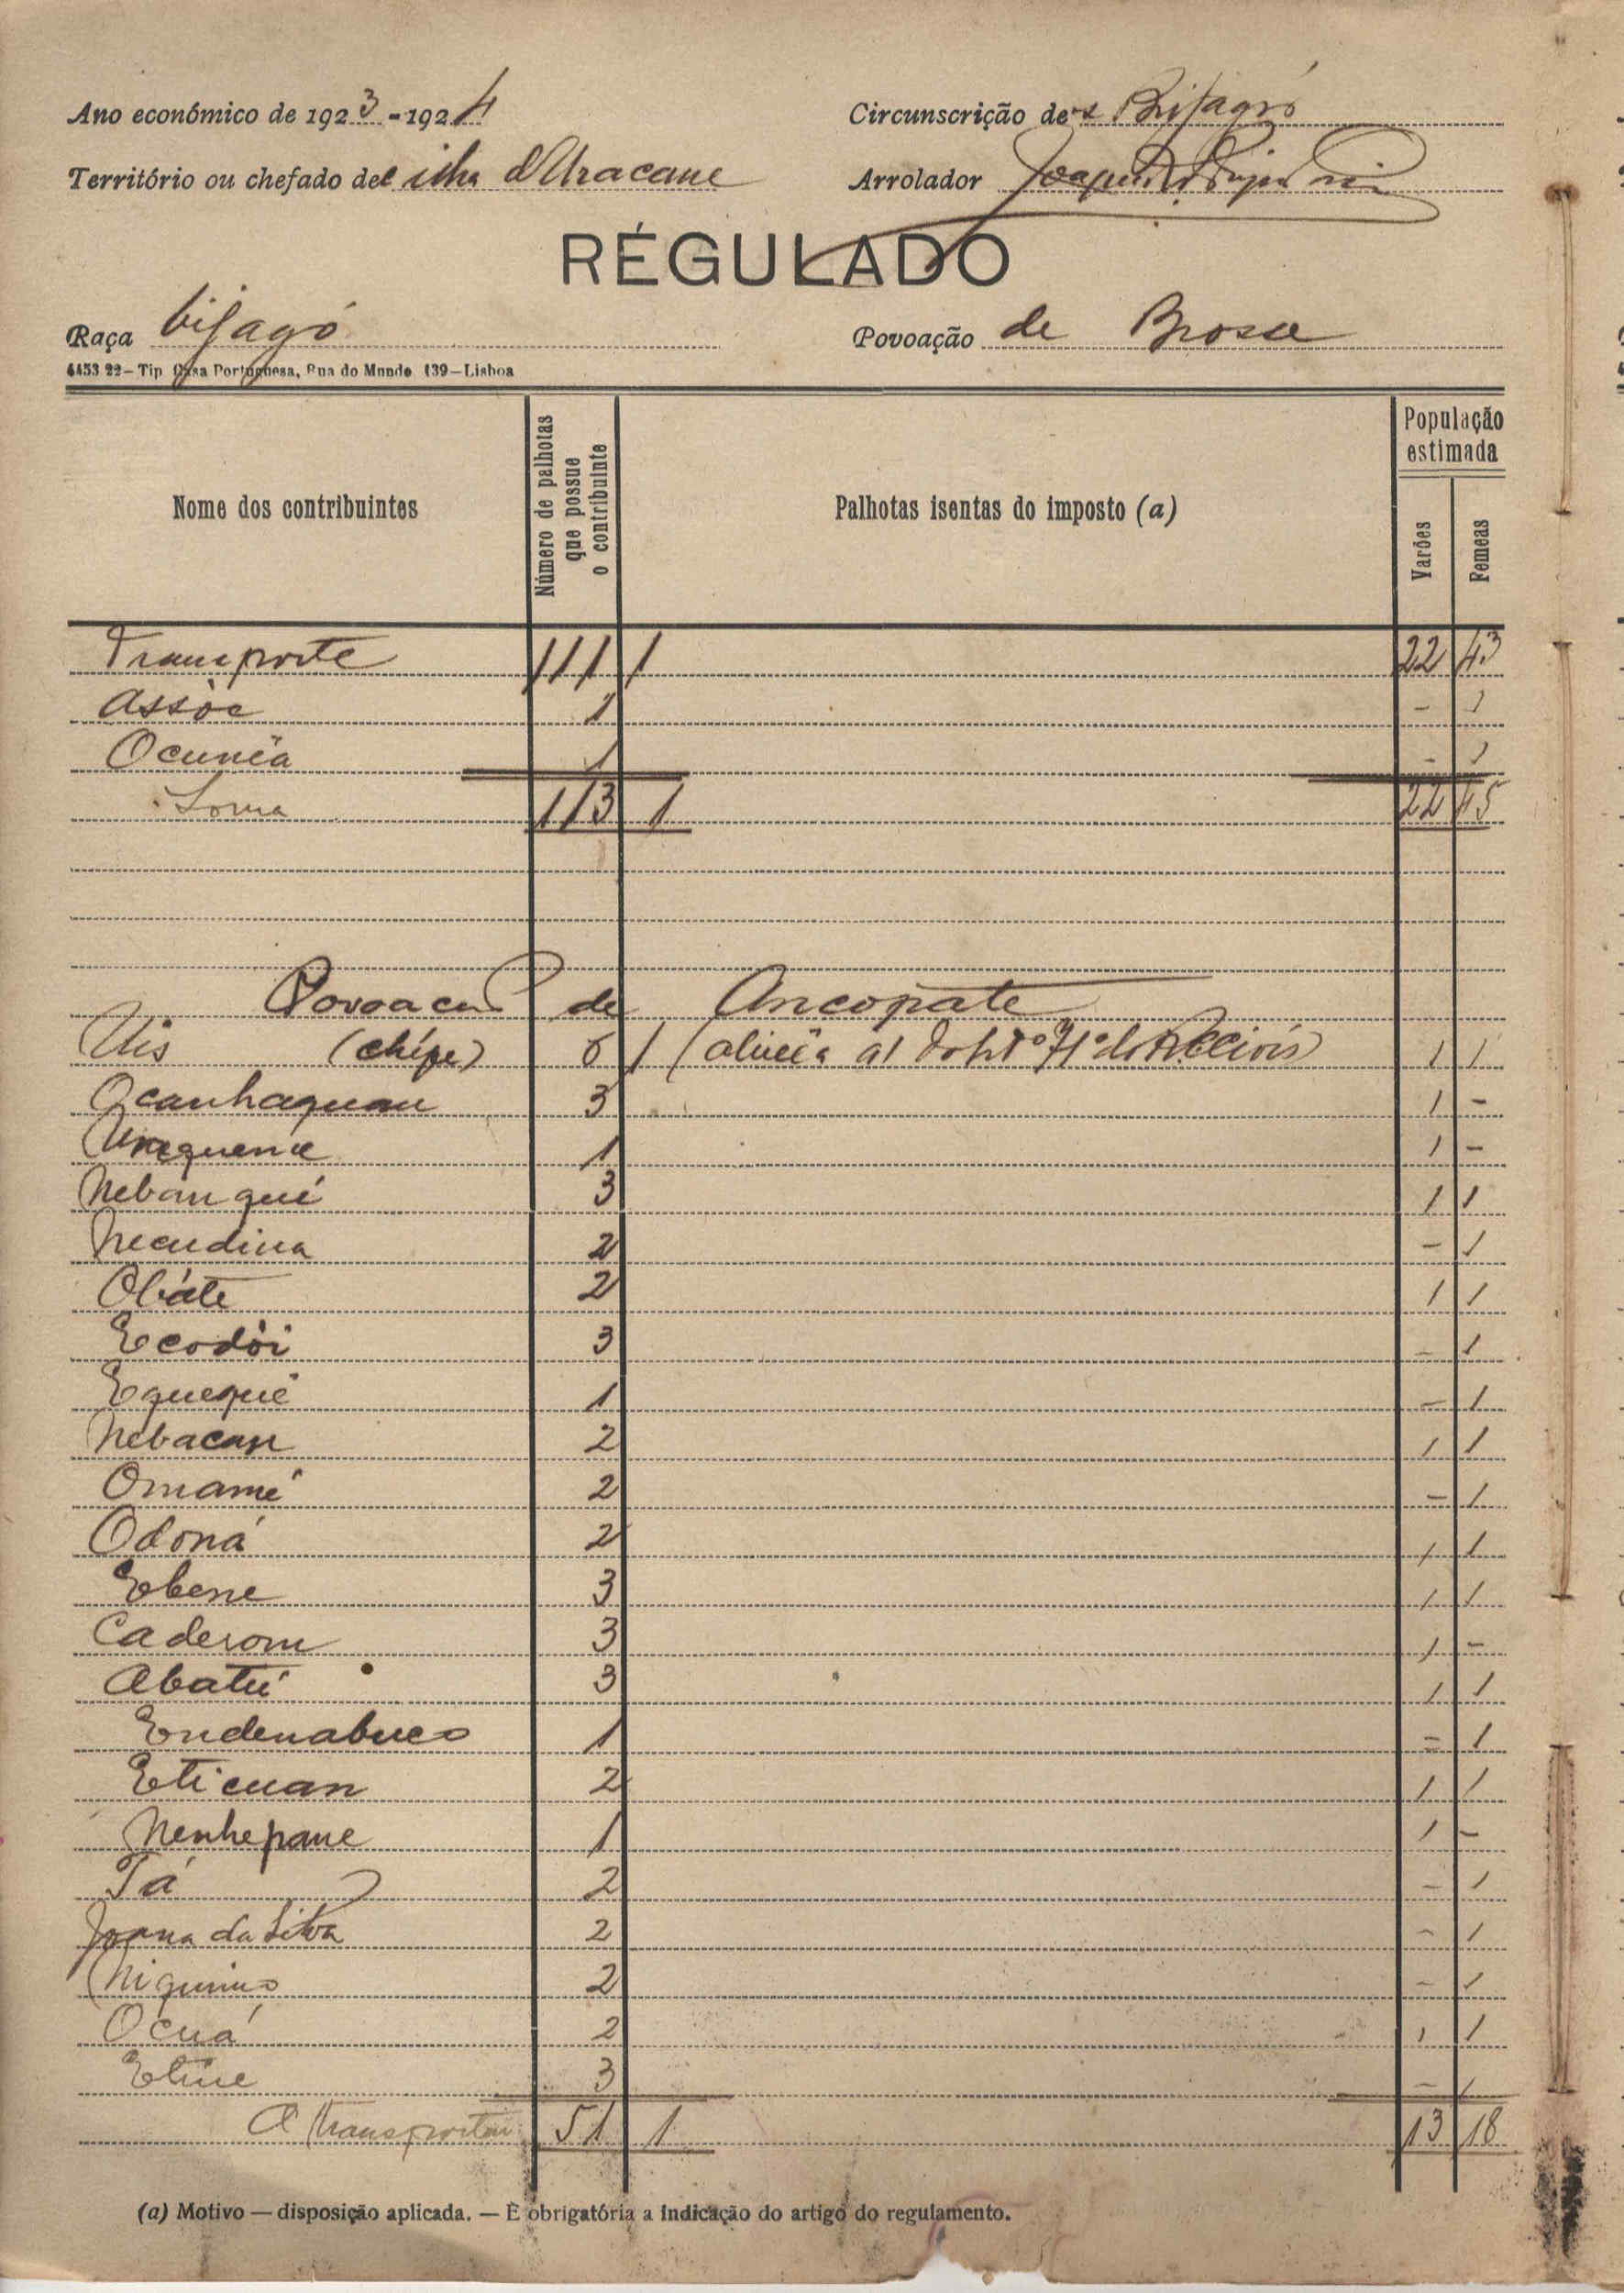 Ano económico de 1923-1924 Circunscrição de Bijagós
Território ou chefado de ilha d'Uracane Arrolador Joaquim
RÉGULADO
Raça bijagó Povoação de
4453 22—Tip Casa Portuguesa, Rua do Mundo 139—Lisboa
Nome dos contribuintes Número de palhotas que possue o contribuinte Palhotas isentas do imposto (a) População estimada Varões Femeas
Transporte 111 1 22 43
Assòe 1 - 1
Ocunëa 1 - 1
Soma 113 1 22 45
Povoação de Ancopate
Uis (chefe) 6 1 1 1
Ocanhaquan 3 1 -
1 1 -
Nebanqué 3 1 1
Necudina 2 - 1
Obáte 2 1 1
Ecodòi 3 - 1
Equequé 1 - 1
Nebacan 2 1 1
Omamé 2 - 1
Odoná 2 1 1
Ebene 3 1 1
Caderom 3 1 -
Abatú 3 1 1
Endenabuco 1 - 1
Eticuan 2 1 1
Nenhepane 1 1 -
Tá 2 - 1
Joana da Silva 2 - 1
2 - 1
Ocuá 2 1 1
Etine 3 - 1
A transportar 51 1 13 18
(a) Motivo — disposição aplicada. — É obrigatória a indicação do artigo do regulamento.